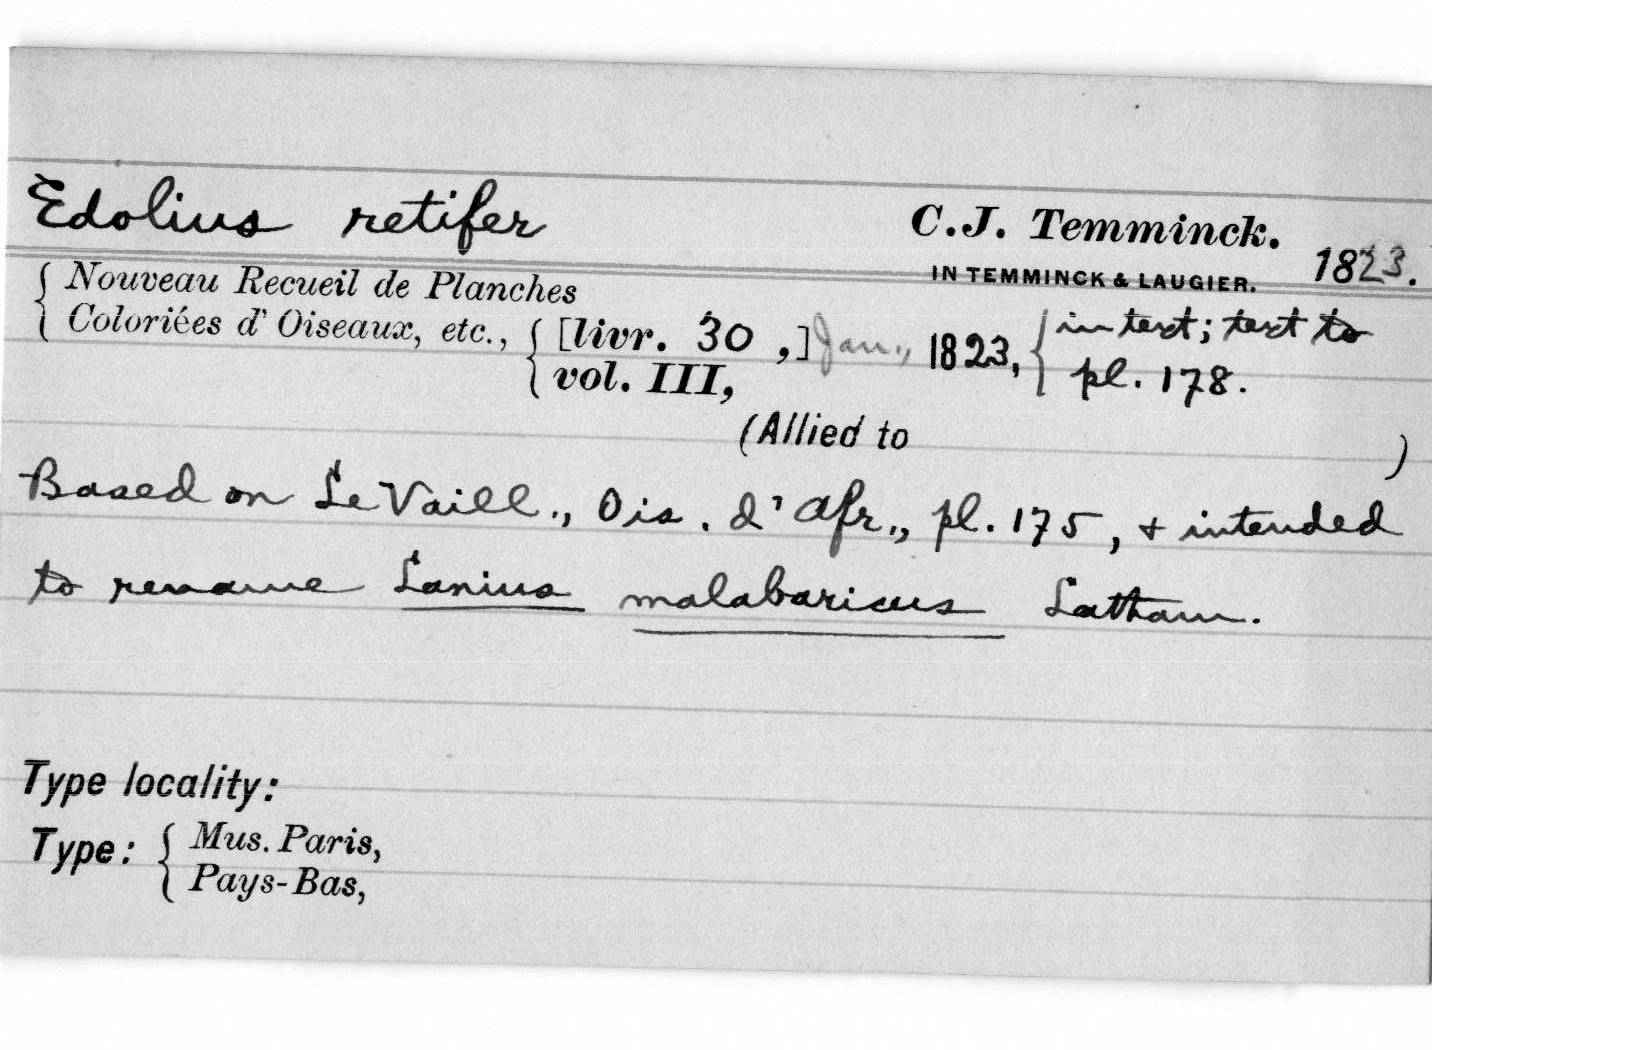 Edolius retifer C.J. Temminck.
IN TEMMINCK & LAUGIER. 1823.
{ Nouveau Recueil de Planches
Coloriées d' Oiseaux, etc., { [livr. 30 ,] Jan., 1823, { in text; text to
vol. III, pl. 178.
(Allied to )
Based on Le Vaill., Ois. d'Afr., pl. 175, & intended
to rename Lanius malabaricus Latham.
Type locality:
Type: { Mus. Paris,
Pays-Bas,